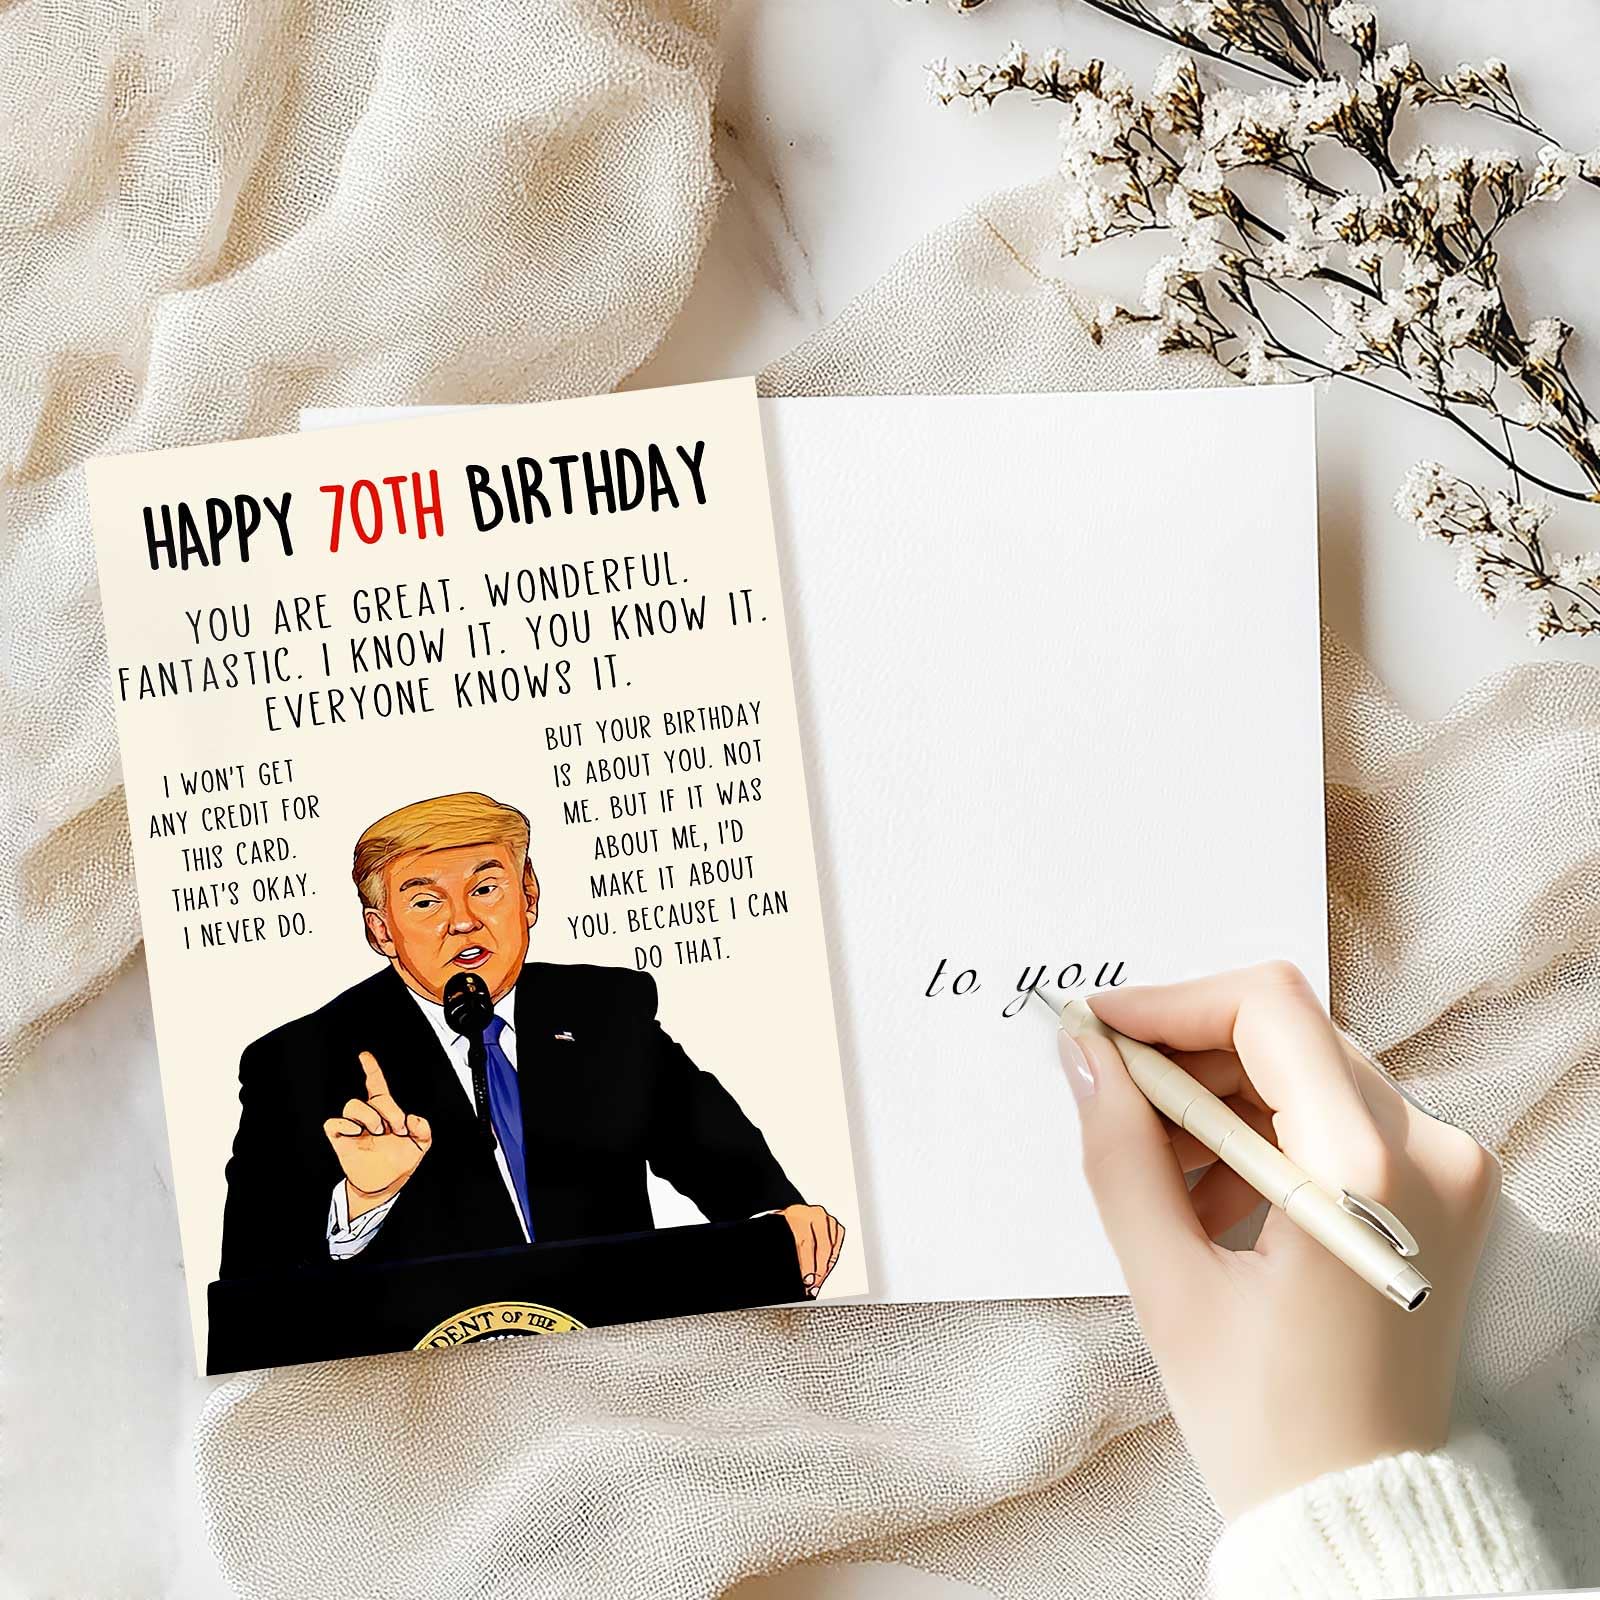 HAPPY 70TH BIRTHDAY
YOU ARE GREAT. WONDERFUL.
FANTASTIC. I KNOW IT. YOU KNOW IT.
EVERYONE KNOWS IT.
I WON'T GET
ANY CREDIT FOR
THIS CARD.
THAT'S OKAY.
I NEVER DO.
BUT YOUR BIRTHDAY
IS ABOUT YOU. NOT
ME. BUT IF IT WAS
ABOUT ME, I'D
MAKE IT ABOUT
YOU. BECAUSE I CAN
DO THAT.
DENT OF THE
to you